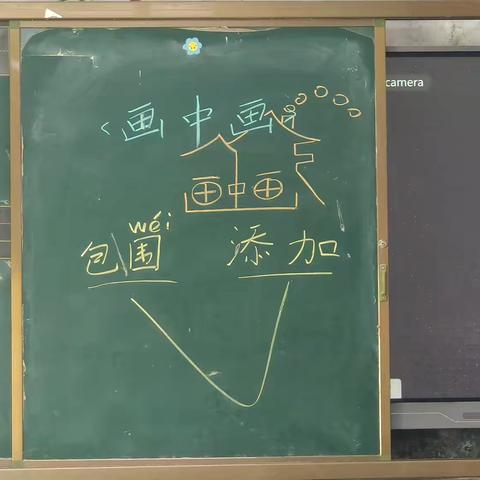 camera
《画中画》
画中画
wéi
包围 添加